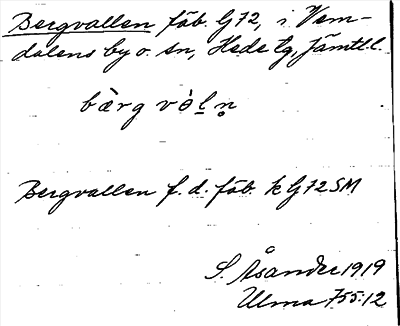 Bergvallen fäb. G72, i Vem-
dalens by o. sn, Hede tg, Jämtl.l.
bærg vòl̠n̥
Bergvallen f.d. fäb. k G72SM
S. Åsander 1919
Ulma 755:12